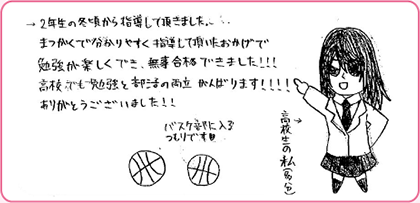 → 2年生の冬頃から指導して頂きました。
まっがくで分かりやすく指導して頂いたおかげで
勉強が楽しくでき、無事合格できました!!!
高校でも勉強と部活の両立 がんばります!!!!
ありがとうございました!!
バスケ部に入る
つもりです
→ 高校生の私(多分)